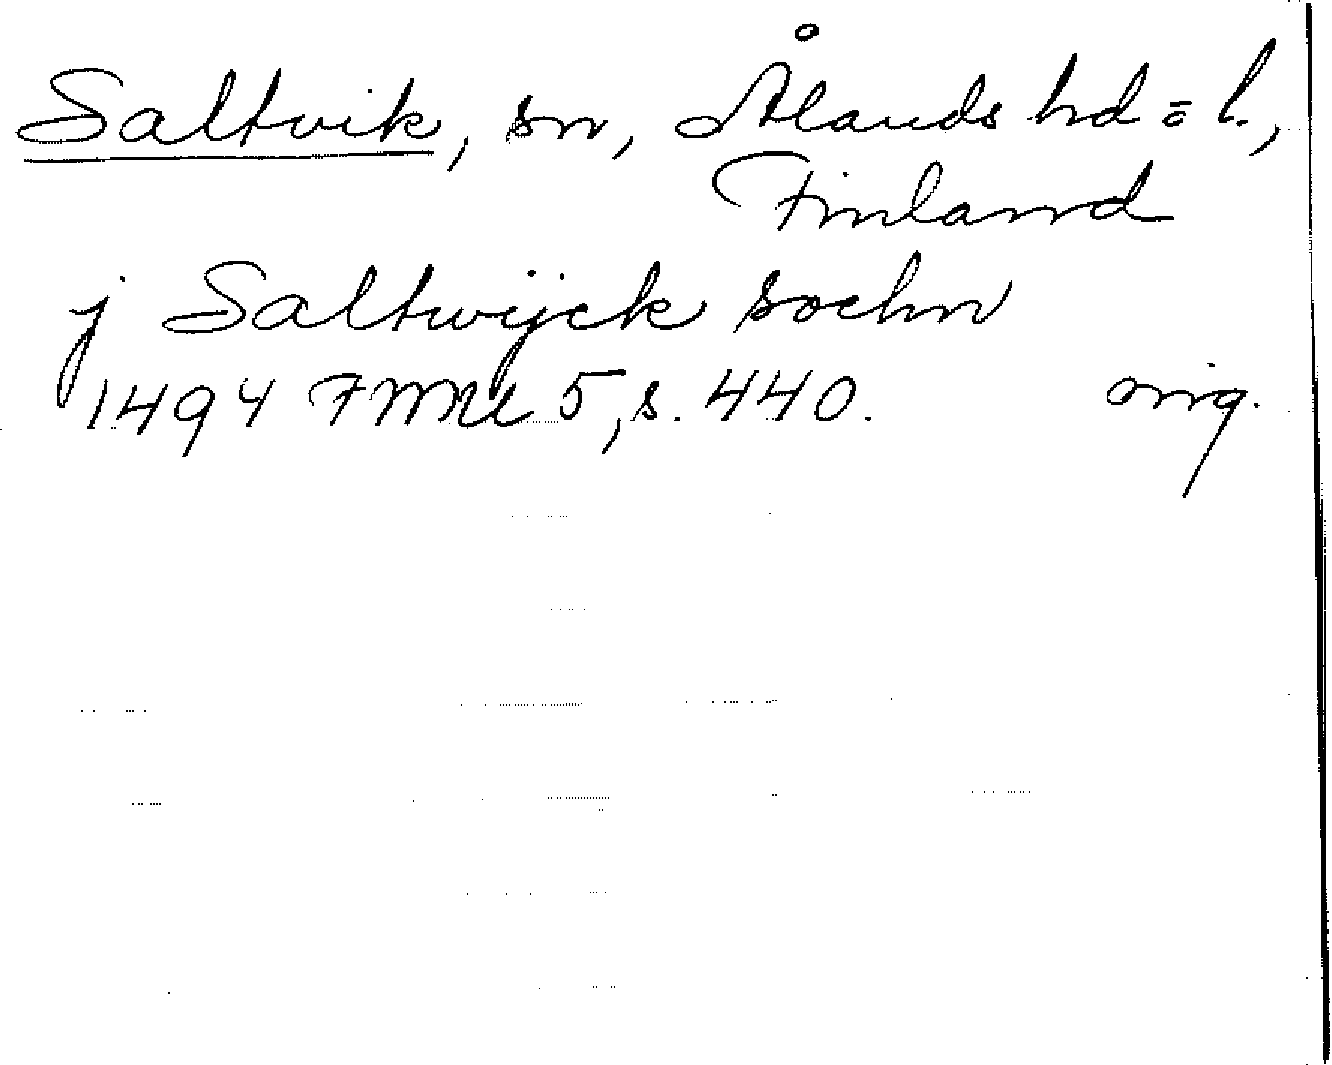 Saltvik, sn, Ålands hd = l.,
Finland
j Saltwijck sochn
1494 FMU 5, s. 440. orig.